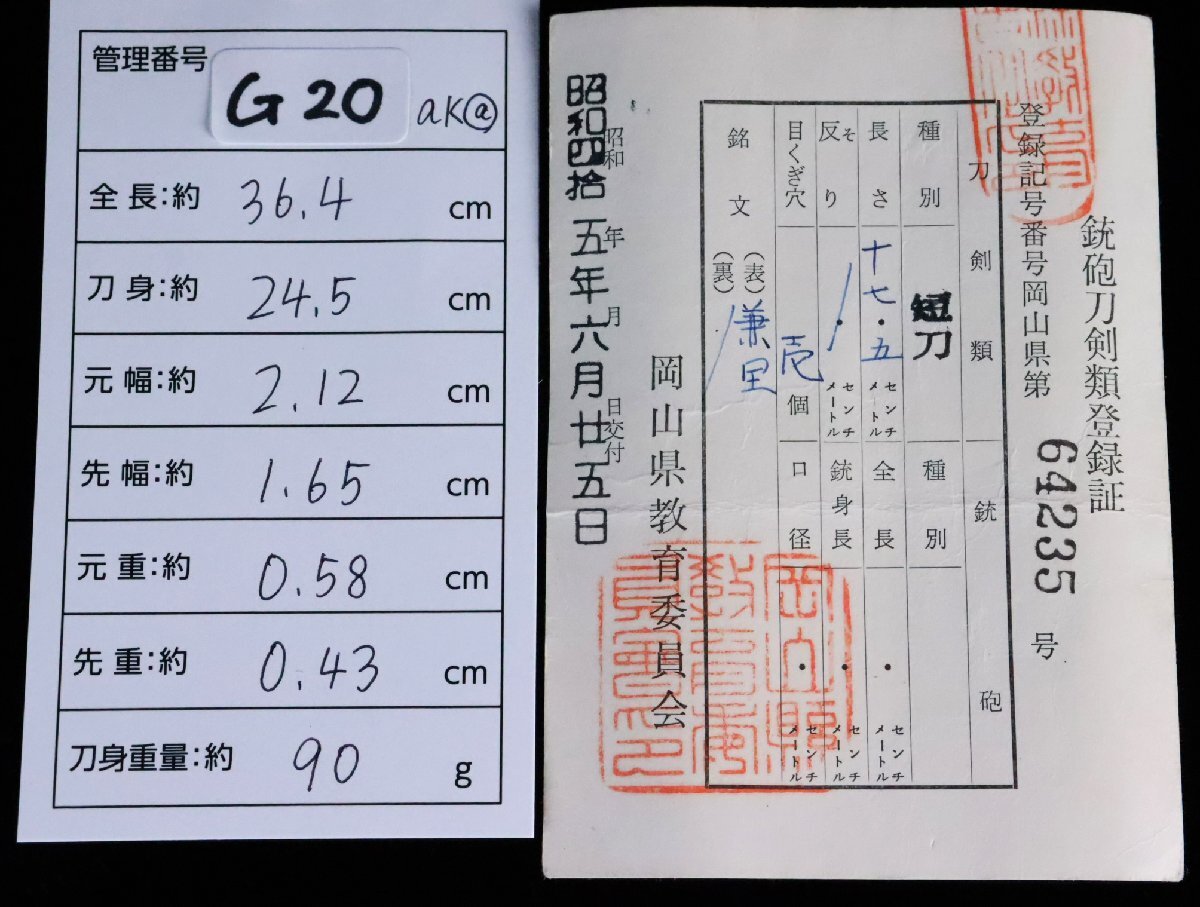 管理番号 G20 aK@
全長:約 36.4 cm
刀身:約 24.5 cm
元幅:約 2.12 cm
先幅:約 1.65 cm
元重:約 0.58 cm
先重:約 0.43 cm
刀身重量:約 90 g
銃砲刀剣類登録証
登録記号番号岡山県第 64235 号
刀剣類 銃砲
種別 短刀 種別
長さ 十七・五 センチメートル 全長 ・ センチメートル
反り そ ・ センチメートル 銃身長 ・ センチメートル
目くぎ穴 壱個 口径 ・ センチメートル
銘文 (表) 兼里
(裏)
岡山県教育委員会
昭和 年 月 日交付
昭和四拾五年六月廿五日
岡山県教育委員会印